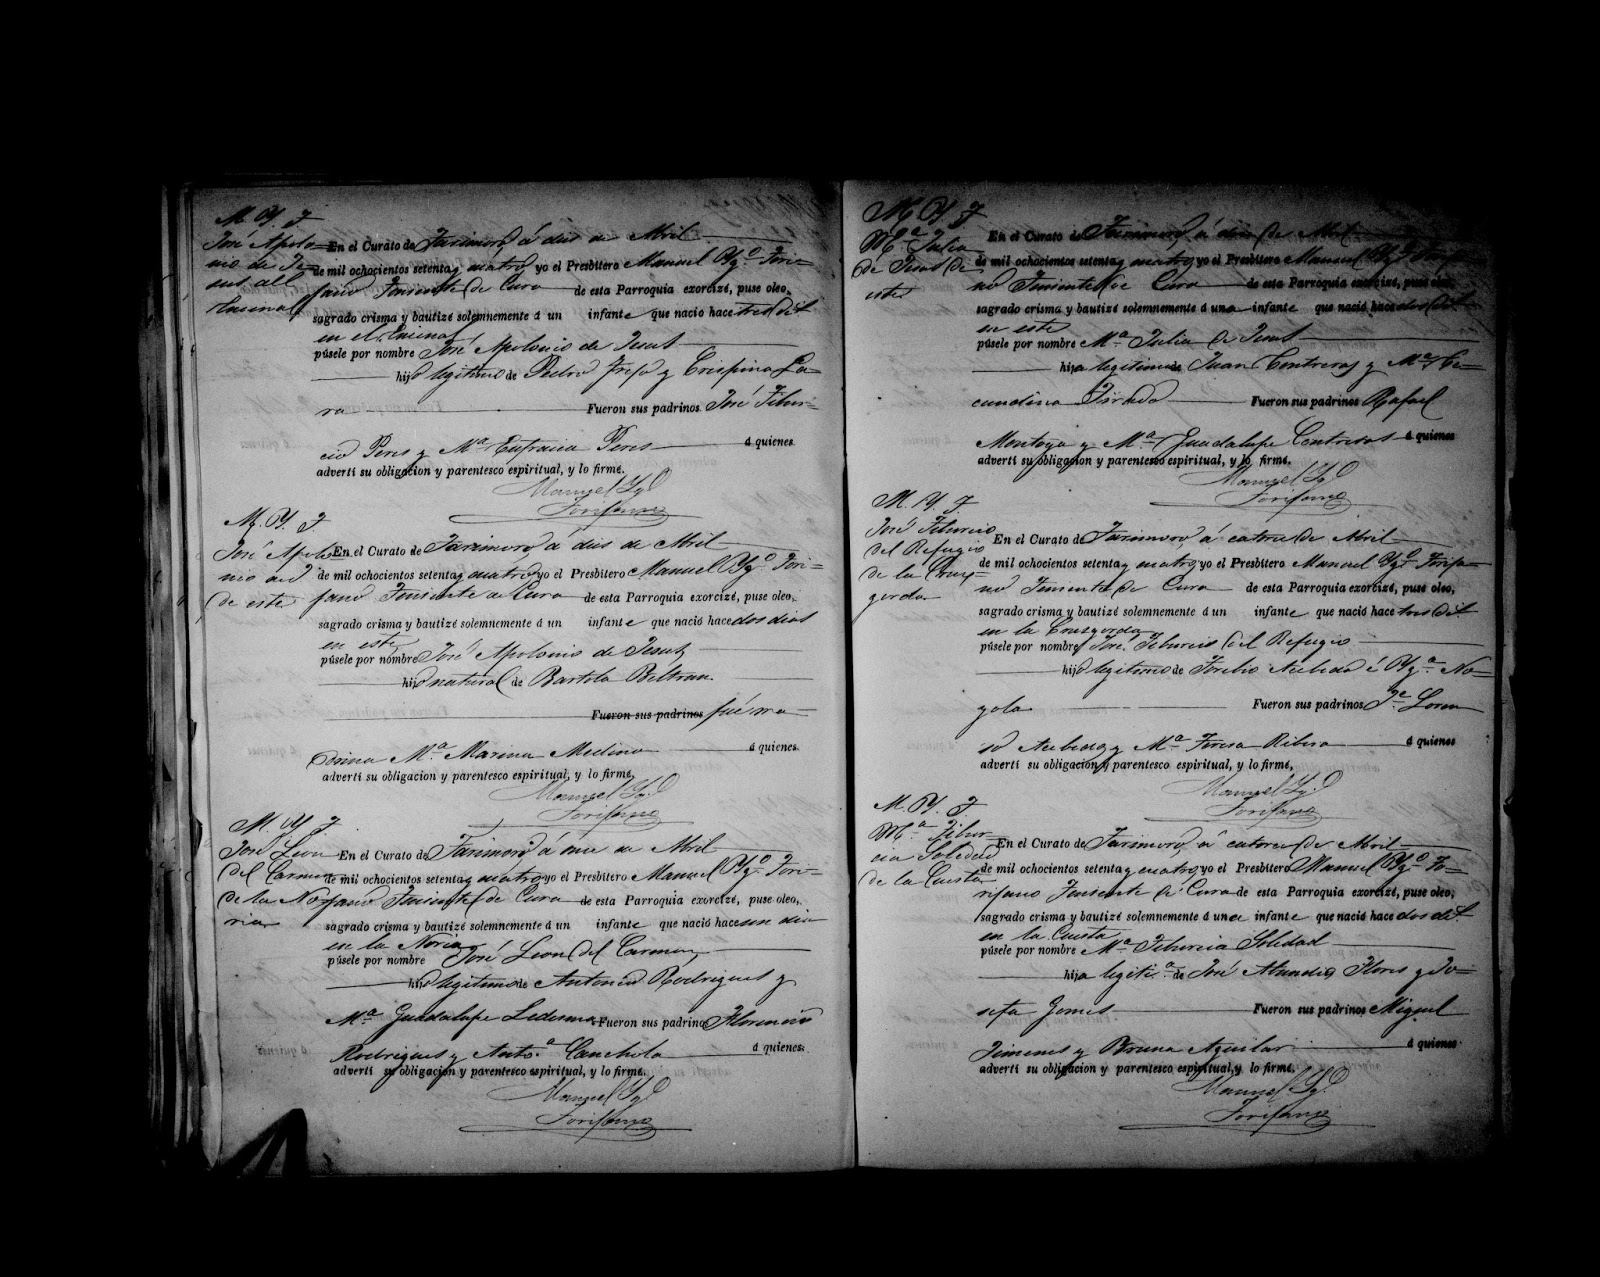 M. Y. J.
José Apolo-
nio de Je-
sus del
Encinal
En el Curato de Tarimoro á dies de Abril
de mil ochocientos setenta y cuatro yo el Presbítero Manuel Ygo. Tori-
fano Teniente de Cura de esta Parroquia exorcizé, puse oleo,
sagrado crisma y bautizé solemnemente á un infante que nació hace tres días
en el Encinal
púsele por nombre José Apolonio de Jesus
hijo legitimo de Pedro y Crispina La-
ra Fueron sus padrinos José Tibur-
cio Peres y Ma. Eufracia Peres á quienes
advertí su obligacion y parentesco espiritual, y lo firmé.
Manuel Ygo.
Torifano
M. Y. J.
José Apolo-
nio
de este
En el Curato de Tarimoro á dies de Abril
de mil ochocientos setenta y cuatro yo el Presbítero Manuel Ygo. Tori-
fano Teniente de Cura de esta Parroquia exorcizé, puse oleo,
sagrado crisma y bautizé solemnemente á un infante que nació hace dos dias
en este
púsele por nombre José Apolonio de Jesus
hijo natural de Bartola Beltran.
Fueron sus padrinos fué ma-
drina Ma. Marina Medina á quienes
advertí su obligacion y parentesco espiritual, y lo firmé,
Manuel Ygo.
Torifano
M. Y. J.
José Leon
del Carmen
de la No-
ria
En el Curato de Tarimoro á once de Abril
de mil ochocientos setenta y cuatro yo el Presbítero Manuel Ygo. Tori-
fano Teniente de Cura de esta Parroquia exorcizé, puse oleo,
sagrado crisma y bautizé solemnemente á un infante que nació hace un dia
en la Noria
púsele por nombre José Leon del Carmen
hijo legitimo de Antonio Rodrigues y
Ma. Guadalupe Ledesma. Fueron sus padrinos Florencio
Rodrigues y Anto.a Canchola á quienes.
advertí su obligacion y parentesco espiritual, y lo firmé.
Manuel Ygo.
Torifano
M. Y. J.
Ma. Julia
de Jesus de
este
En el Curato de Tarimoro á de Abril
de mil ochocientos setenta y cuatro yo el Presbítero Manuel Ygo. Torifa-
no Teniente de Cura de esta Parroquia exorcizé, puse oleo,
sagrado crisma y bautizé solemnemente á una infante que nació hace dos días
en este
púsele por nombre Ma. Julia de Jesus
hija legitima de Juan Contreras y Ma. Se-
cundina Tirado Fueron sus padrinos Rafael
Montoya y Ma. Guadalupe Contreras á quienes
advertí su obligacion y parentesco espiritual, y lo firmé.
Manuel Ygo.
Torifano
M. Y. J.
José Tiburcio
del Refugio
de la Cruz-
gorda
En el Curato de Tarimoro á catorce de Abril
de mil ochocientos setenta y cuatro yo el Presbítero Manuel Ygo. Torifa-
no Teniente de Cura de esta Parroquia exorcizé, puse oleo,
sagrado crisma y bautizé solemnemente á un infante que nació hace tres días
en la Cruzgorda
púsele por nombre José Tiburcio del Refugio
hijo legitimo de Toribio é Yga.
Fueron sus padrinos Je. Loren
so y Ma. Teresa Ribera á quienes
advertí su obligacion y parentesco espiritual, y lo firmé,
Manuel Ygo.
Torifano
M. Y. J.
Ma. Tibur-
cia Soledad
de la Cuesta
En el Curato de Tarimoro, á catorce de Abril
de mil ochocientos setenta y cuatro yo el Presbítero Manuel Ygo. To-
rifano Teniente de Cura de esta Parroquia exorcizé, puse oleo,
sagrado crisma y bautizé solemnemente á una infante que nació hace dos días
en la Cuesta
púsele por nombre Ma. Tiburcia Soledad
hija legiti.a de José Abundio Flores y Jo-
sefa Gomes Fueron sus padrinos Miguel
Jimenes y Bruna Aguilar á quienes
advertí su obligacion y parentesco espiritual, y lo firmé.
Manuel Ygo.
Torifano